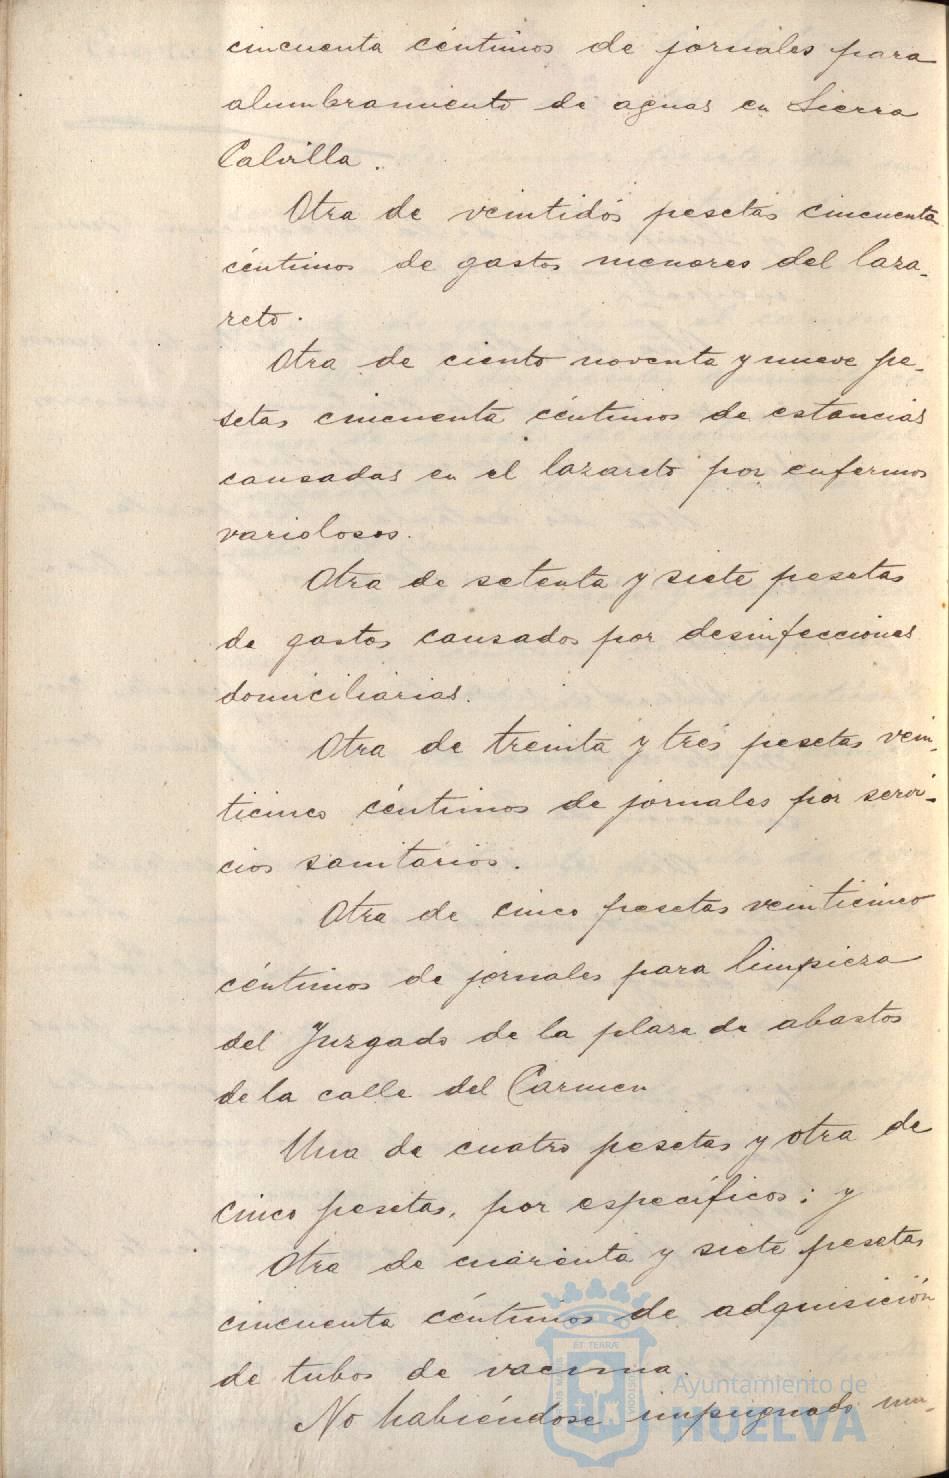 cincuenta céntimos de jornales para
alumbramiento de aguas en Sierra
Calvilla.
Otra de veintidós pesetas cincuenta
céntimos de gastos menores del laza-
reto.
Otra de ciento noventa y nueve pe-
setas cincuenta céntimos de estancias
causadas en el lazareto por enfermos
variolosos.
Otra de setenta y siete pesetas
de gastos causados por desinfecciones
domiciliarias.
Otra de treinta y tres pesetas vein-
ticinco céntimos de jornales por servi-
cios sanitarios.
Otra de cinco pesetas veinticinco
céntimos de jornales para limpieza
del Juzgado de la plaza de abastos
de la calle del Carmen
Una de cuatro pesetas y otra de
cinco pesetas, por específicos; y
Otra de cuarenta y siete pesetas
cincuenta céntimos de adquisición
de tubos de vacuna.
No habiéndose impugnado nin-
ET TERRÆ
Ayuntamiento de
HUELVA